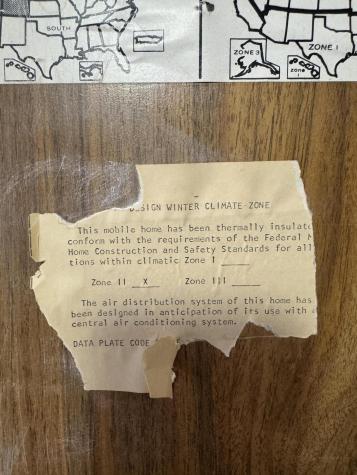 SOUTH
ZONE 3
ZONE 1
zone
DESIGN WINTER CLIMATE ZONE
This mobile home has been thermally insulate
conform with the requirements of the Federal M
Home Construction and Safety Standards for all
tions within climatic Zone I ____
Zone II __X__ Zone III ____
The air distribution system of this home has
been designed in anticipation of its use with
central air conditioning system.
DATA PLATE CODE